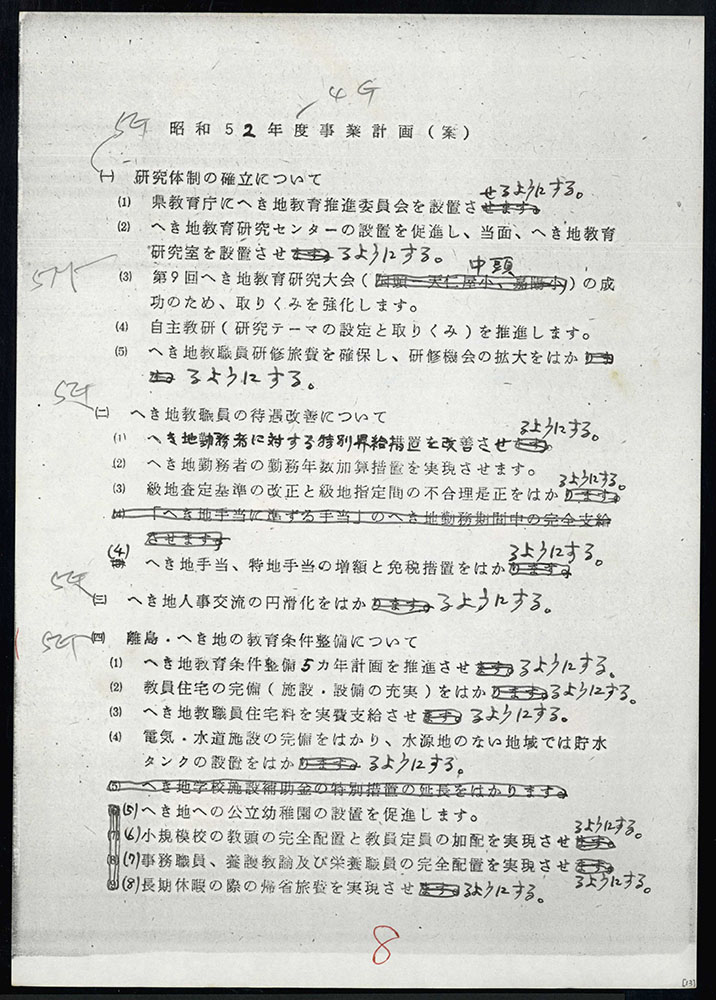 4G
5G 昭和52年度事業計画(案)
㈠ 研究体制の確立について
(1) 県教育庁にへき地教育推進委員会を設置させるようにする。
(2) へき地教育研究センターの設置を促進し、当面、へき地教育
研究室を設置させるようにする。
(3) 第9回へき地教育研究大会(中頭)の成
功のため、取りくみを強化します。
(4) 自主教研(研究テーマの設定と取りくみ)を推進します。
(5) へき地教職員研修旅費を確保し、研修機会の拡大をはか
るようにする。
㈡ へき地教職員の待遇改善について
(1) へき地勤務者に対する特別昇給措置を改善させるようにする。
(2) へき地勤務者の勤務年数加算措置を実現させます。
(3) 級地査定基準の改正と級地指定間の不合理是正をはかるようにする。
(4) 「へき地手当に準ずる手当」のへき地勤務期間中の完全支給
させます。
(4) へき地手当、特地手当の増額と免税措置をはかるようにする。
㈢ へき地人事交流の円滑化をはかるようにする。
㈣ 離島・へき地の教育条件整備について
(1) へき地教育条件整備5カ年計画を推進させるようにする。
(2) 教員住宅の完備(施設・設備の充実)をはかるようにする。
(3) へき地教職員住宅料を実費支給させるようにする。
(4) 電気・水道施設の完備をはかり、水源地のない地域では貯水
タンクの設置をはかるようにする。
(5) へき地学校施設補助金の特別措置の延長をはかります。
(5) へき地への公立幼稚園の設置を促進します。
(6) 小規模校の教頭の完全配置と教員定員の加配を実現させるようにする。
(7) 事務職員、養護教諭及び栄養職員の完全配置を実現させるようにする。
(8) 長期休暇の際の帰省旅費を実現させるようにする。
8
[13]